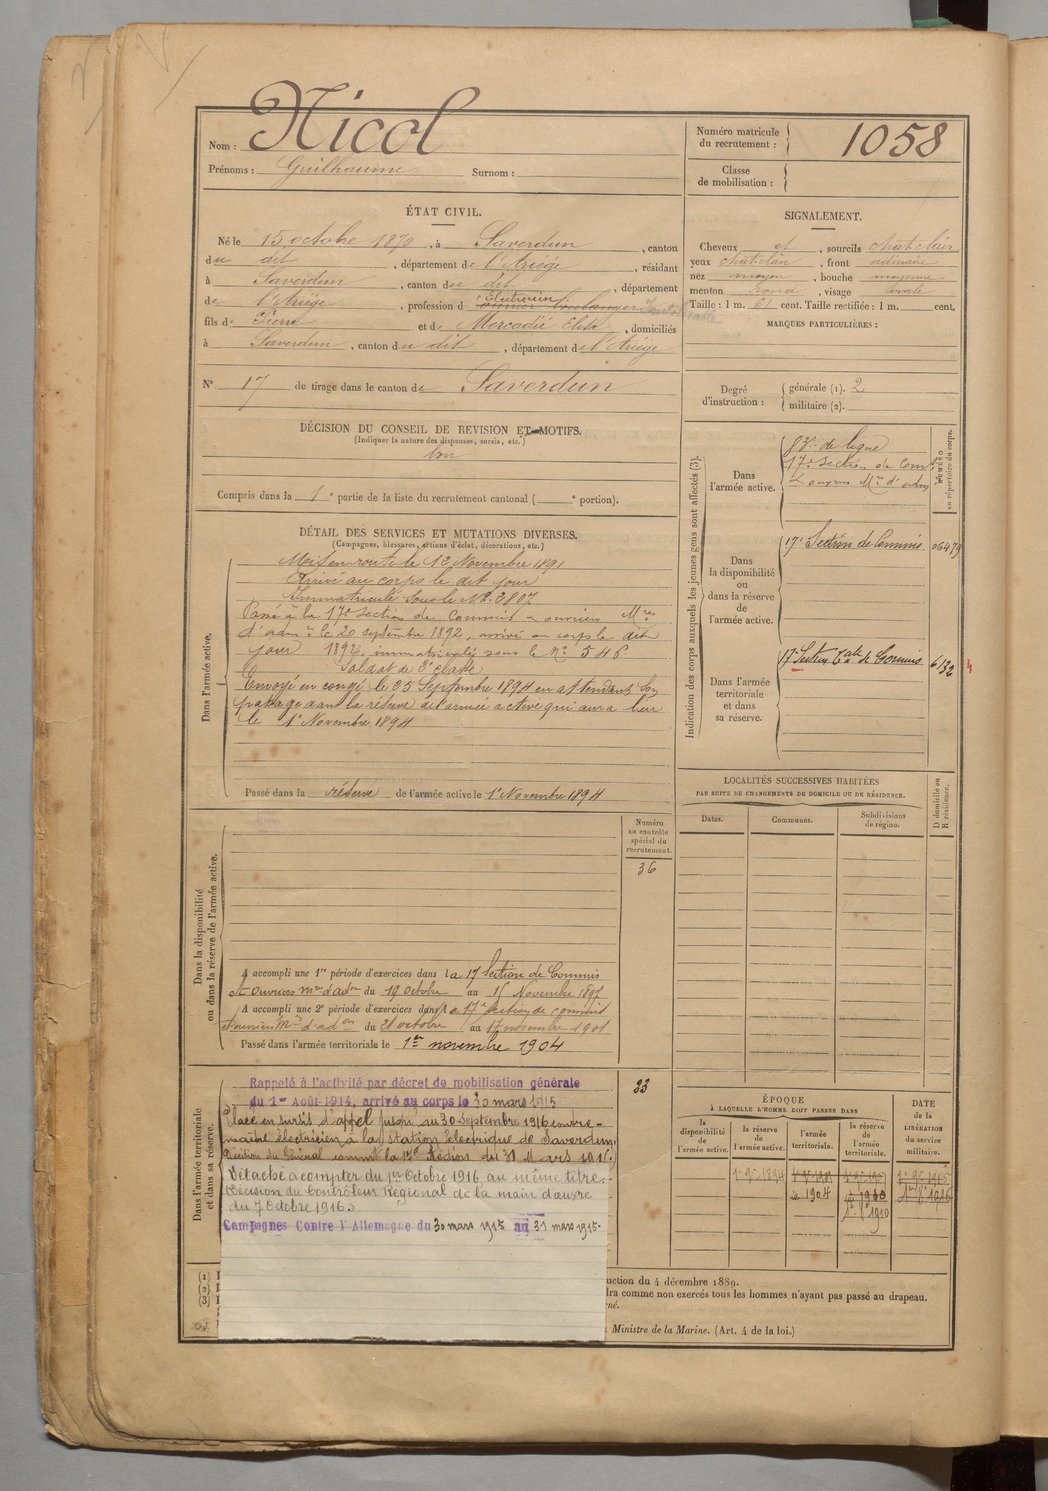 Nom : Nicol
Prénoms : Guilhaume Surnom :
Numéro matricule du recrutement : 1058
Classe de mobilisation :
ÉTAT CIVIL.
Né le 15 octobre 1870, à Saverdun, canton
du dit, département de l'Ariège, résidant
à Saverdun, canton du dit, département
de l'Ariège, profession d Electricien boulanger
fils de Pierre et de Mercadié Elise, domiciliés
à Saverdun, canton du dit, département de l'Ariège
N° 17 de tirage dans le canton de Saverdun
SIGNALEMENT.
Cheveux et, sourcils chat clair
yeux chat clair, front ordinaire
nez moyen, bouche moyenne
menton rond, visage ovale
Taille : 1 m. 61 cent. Taille rectifiée : 1 m. cent.
MARQUES PARTICULIÈRES :
Degré d'instruction : générale (1). 2
militaire (2).
DÉCISION DU CONSEIL DE REVISION ET MOTIFS.
(Indiquer la nature des dispenses, sursis, etc.)
bon
Compris dans la 1e partie de la liste du recrutement cantonal ( e portion).
DÉTAIL DES SERVICES ET MUTATIONS DIVERSES.
(Campagnes, blessures, actions d'éclat, décorations, etc.)
Dans l'armée active.
Mis en route le 12 Novembre 1891
Arrivé au corps le dit jour
Immatriculé sous le No 3807
Passé à la 17e section de Commis & ouvriers Mres
d'admon le 20 septembre 1892, arrivé au corps le dit
jour 1892, immatriculé sous le No 546
Soldat de 2e classe
Envoyé en congé le 25 Septembre 1894 en attendant son
passage dans la réserve de l'armée active qui aura lieu
le 1er Novembre 1894
Passé dans la réserve de l'armée active le 1er Novembre 1894
Indication des corps auxquels les jeunes gens sont affectés (3).
NUMÉRO au répertoire du corps.
Dans l'armée active.
83e de ligne
17e section de Comis
& ouvriers Mres d'adm
Dans la disponibilité ou dans la réserve de l'armée active.
17e Section de Commis. 06479
Dans l'armée territoriale et dans sa réserve.
17 Section Tale de Commis 6132
LOCALITÉS SUCCESSIVES HABITÉES
PAR SUITE DE CHANGEMENTS DE DOMICILE OU DE RÉSIDENCE.
Dates. Communes. Subdivisions de région. D domicile ou R résidence.
Dans la disponibilité ou dans la réserve de l'armée active.
Numéro au contrôle spécial du recrutement.
36
A accompli une 1re période d'exercices dans la 17 Section de Commis
et Ouvriers mres d'adon du 19 octobre au 15 Novembre 1897
A accompli une 2e période d'exercices dans la 17e section de commis
et ouvriers Mres d'adon du 21 octobre au 17 novembre 1901
Passé dans l'armée territoriale le 1er novembre 1904
Dans l'armée territoriale et dans sa réserve.
33
Rappelé à l'activité par décret de mobilisation générale
du 1er Août 1914, arrivé au corps le 30 mars 1915
Placé en sursis d'appel jusqu'au 30 Septembre 1916 contre-
maître électricien à la station électrique de Saverdun,
Décision du Général commt la 17e Région du 31 Mars 1916.
Détaché à compter du 1er Octobre 1916 au même titre.
Décision du Contrôleur Régional de la main d'œuvre
du 7 Octobre 1916.
Campagnes Contre l'Allemagne du 30 mars 1915 au 31 mars 1915.
ÉPOQUE
À LAQUELLE L'HOMME DOIT PASSER DANS
la disponibilité de l'armée active.
la réserve de l'armée active.
l'armée territoriale.
la réserve de l'armée territoriale.
DATE de la LIBÉRATION du service militaire.
1er 9e 1894
1904
1910
1er 8e 1910
1er 8e 1916
(1)
(2)
(3)
uction du 4 décembre 1889.
dra comme non exercés tous les hommes n'ayant pas passé au drapeau.
rné.
Ministre de la Marine. (Art. 4 de la loi.)